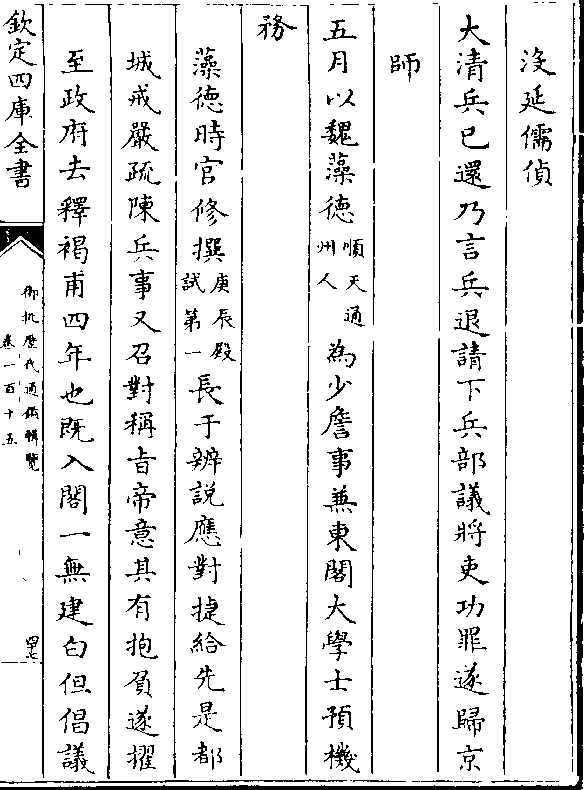 沒延儒偵
大清兵已還乃言兵退請下兵部議將吏功罪遂歸京
師
五月以魏藻德順天通州人為少詹事兼東閣大學士預機
務
藻德時官修撰庚辰殿試第一長于辨説應對捷給先是都
城戒嚴疏陳兵事又召對稱旨帝意其有抱負遂擢
至政府去釋褐甫四年也既入閣一無建白但倡議
欽定四庫全書
御批歷代通鑑輯覽
卷一百十五
四七